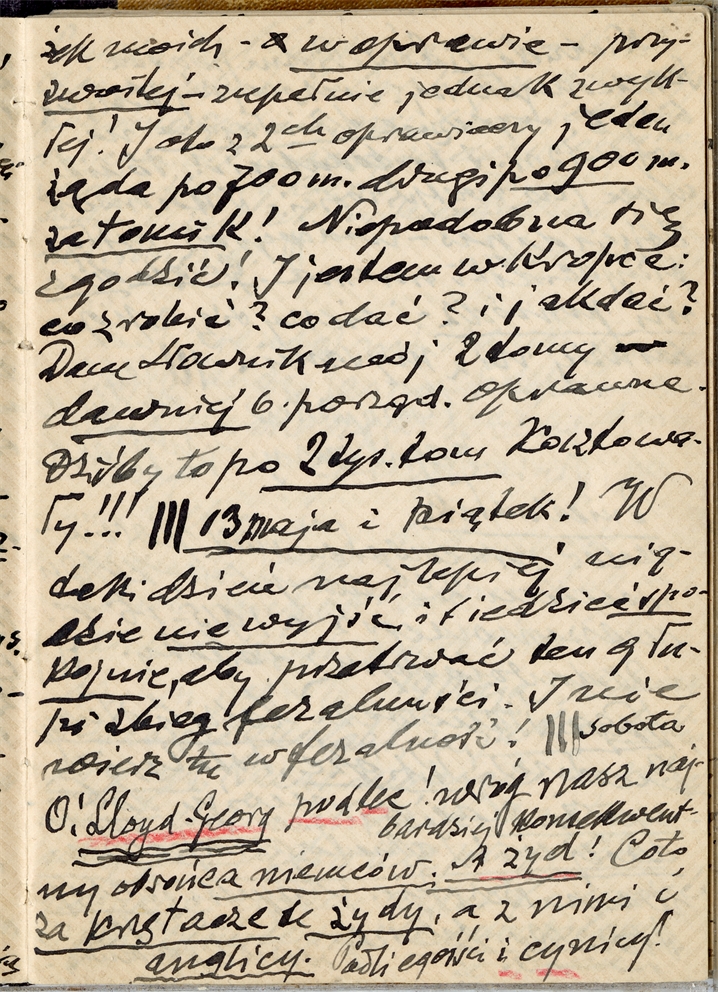 żek moich - a w oprawie - przy-
zwoitej - zupełnie jednak zwyk-
łej! I oto z 2ch oprawiaczy jeden
żąda po 700 m. drugi po 900 m.
za tomik! Niepodobna się
zgodzić! I jestem w kropce:
co zrobić? co dać? i jak dać?
Dam słownik mój 2 tomy
dawniej b. porząd. oprawne.
Dziś by to po 2 tys. tom kosztowa-
ły!!! ||| 13 maja i piątek! W
taki dzień najlepiej nig-
dzie nie wyjść, i siedzieć spo-
kojnie, aby przetrwać ten głu-
pi zbieg feralności. I nie
wierz tu w feralność! ||| sobota
O! Lloyd-Georg podlec! wróg nasz naj-
bardziej konsekwent-
ny obrońca niemców. A żyd! Co to
za krętacze te żydy, a z nimi i
anglicy. Podli egoiści i cynicy!